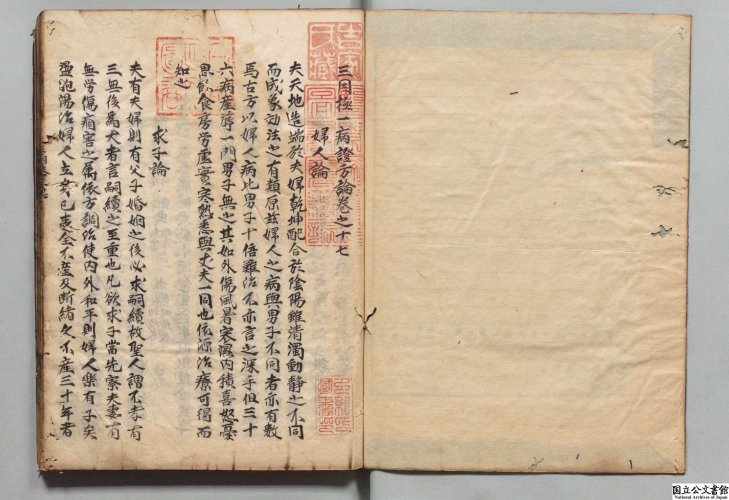 三因極一病證方論卷之十七
婦人論
夫天地造端於夫婦乾坤配合於陰陽雖清濁動靜之不同
而成象效法之有類原玆婦人之病與男子不同者亦有數
焉古方以婦人病比男子十倍難治不亦言之深乎但三十
六病產蓐一門男子無之其如外傷風暑寒濕內積喜怒憂
思飲食房勞虛實寒熱悉與丈夫一同也依源治療可得而
知之
求子論
夫有夫婦則有父子婚姻之後必求嗣續故聖人謂不孝有
三無後爲大者言嗣續之至重也凡欲求子當先察夫妻有
無勞傷痼害之屬依方調治使內外和平則婦人樂有子矣
盪胞湯治婦人立身已來全不產及斷緒久不產三十年者
国立公文書館
National Archives of Japan